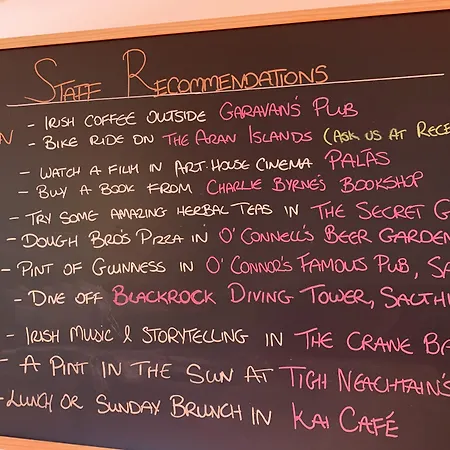 STAFF RECOMMENDATIONS
- IRISH COFFEE OUTSIDE GARAVAN'S PUB
- BIKE RIDE ON THE ARAN ISLANDS (ASK US AT RECE
- WATCH A FILM IN ART-HOUSE CINEMA PALÁS
- BUY A BOOK FROM CHARLIE BYRNE'S BOOKSHOP
- TRY SOME AMAZING HERBAL TEAS IN THE SECRET G
- DOUGH BRO'S PIZZA IN O'CONNELL'S BEER GARDEN
- PINT OF GUINNESS IN O'CONNOR'S FAMOUS PUB, SA
- DIVE OFF BLACKROCK DIVING TOWER, SALTHI
- IRISH MUSIC & STORYTELLING IN THE CRANE BA
- A PINT IN THE SUN AT TIGH NEACHTAIN'S
- LUNCH OR SUNDAY BRUNCH IN KAI CAFÉ